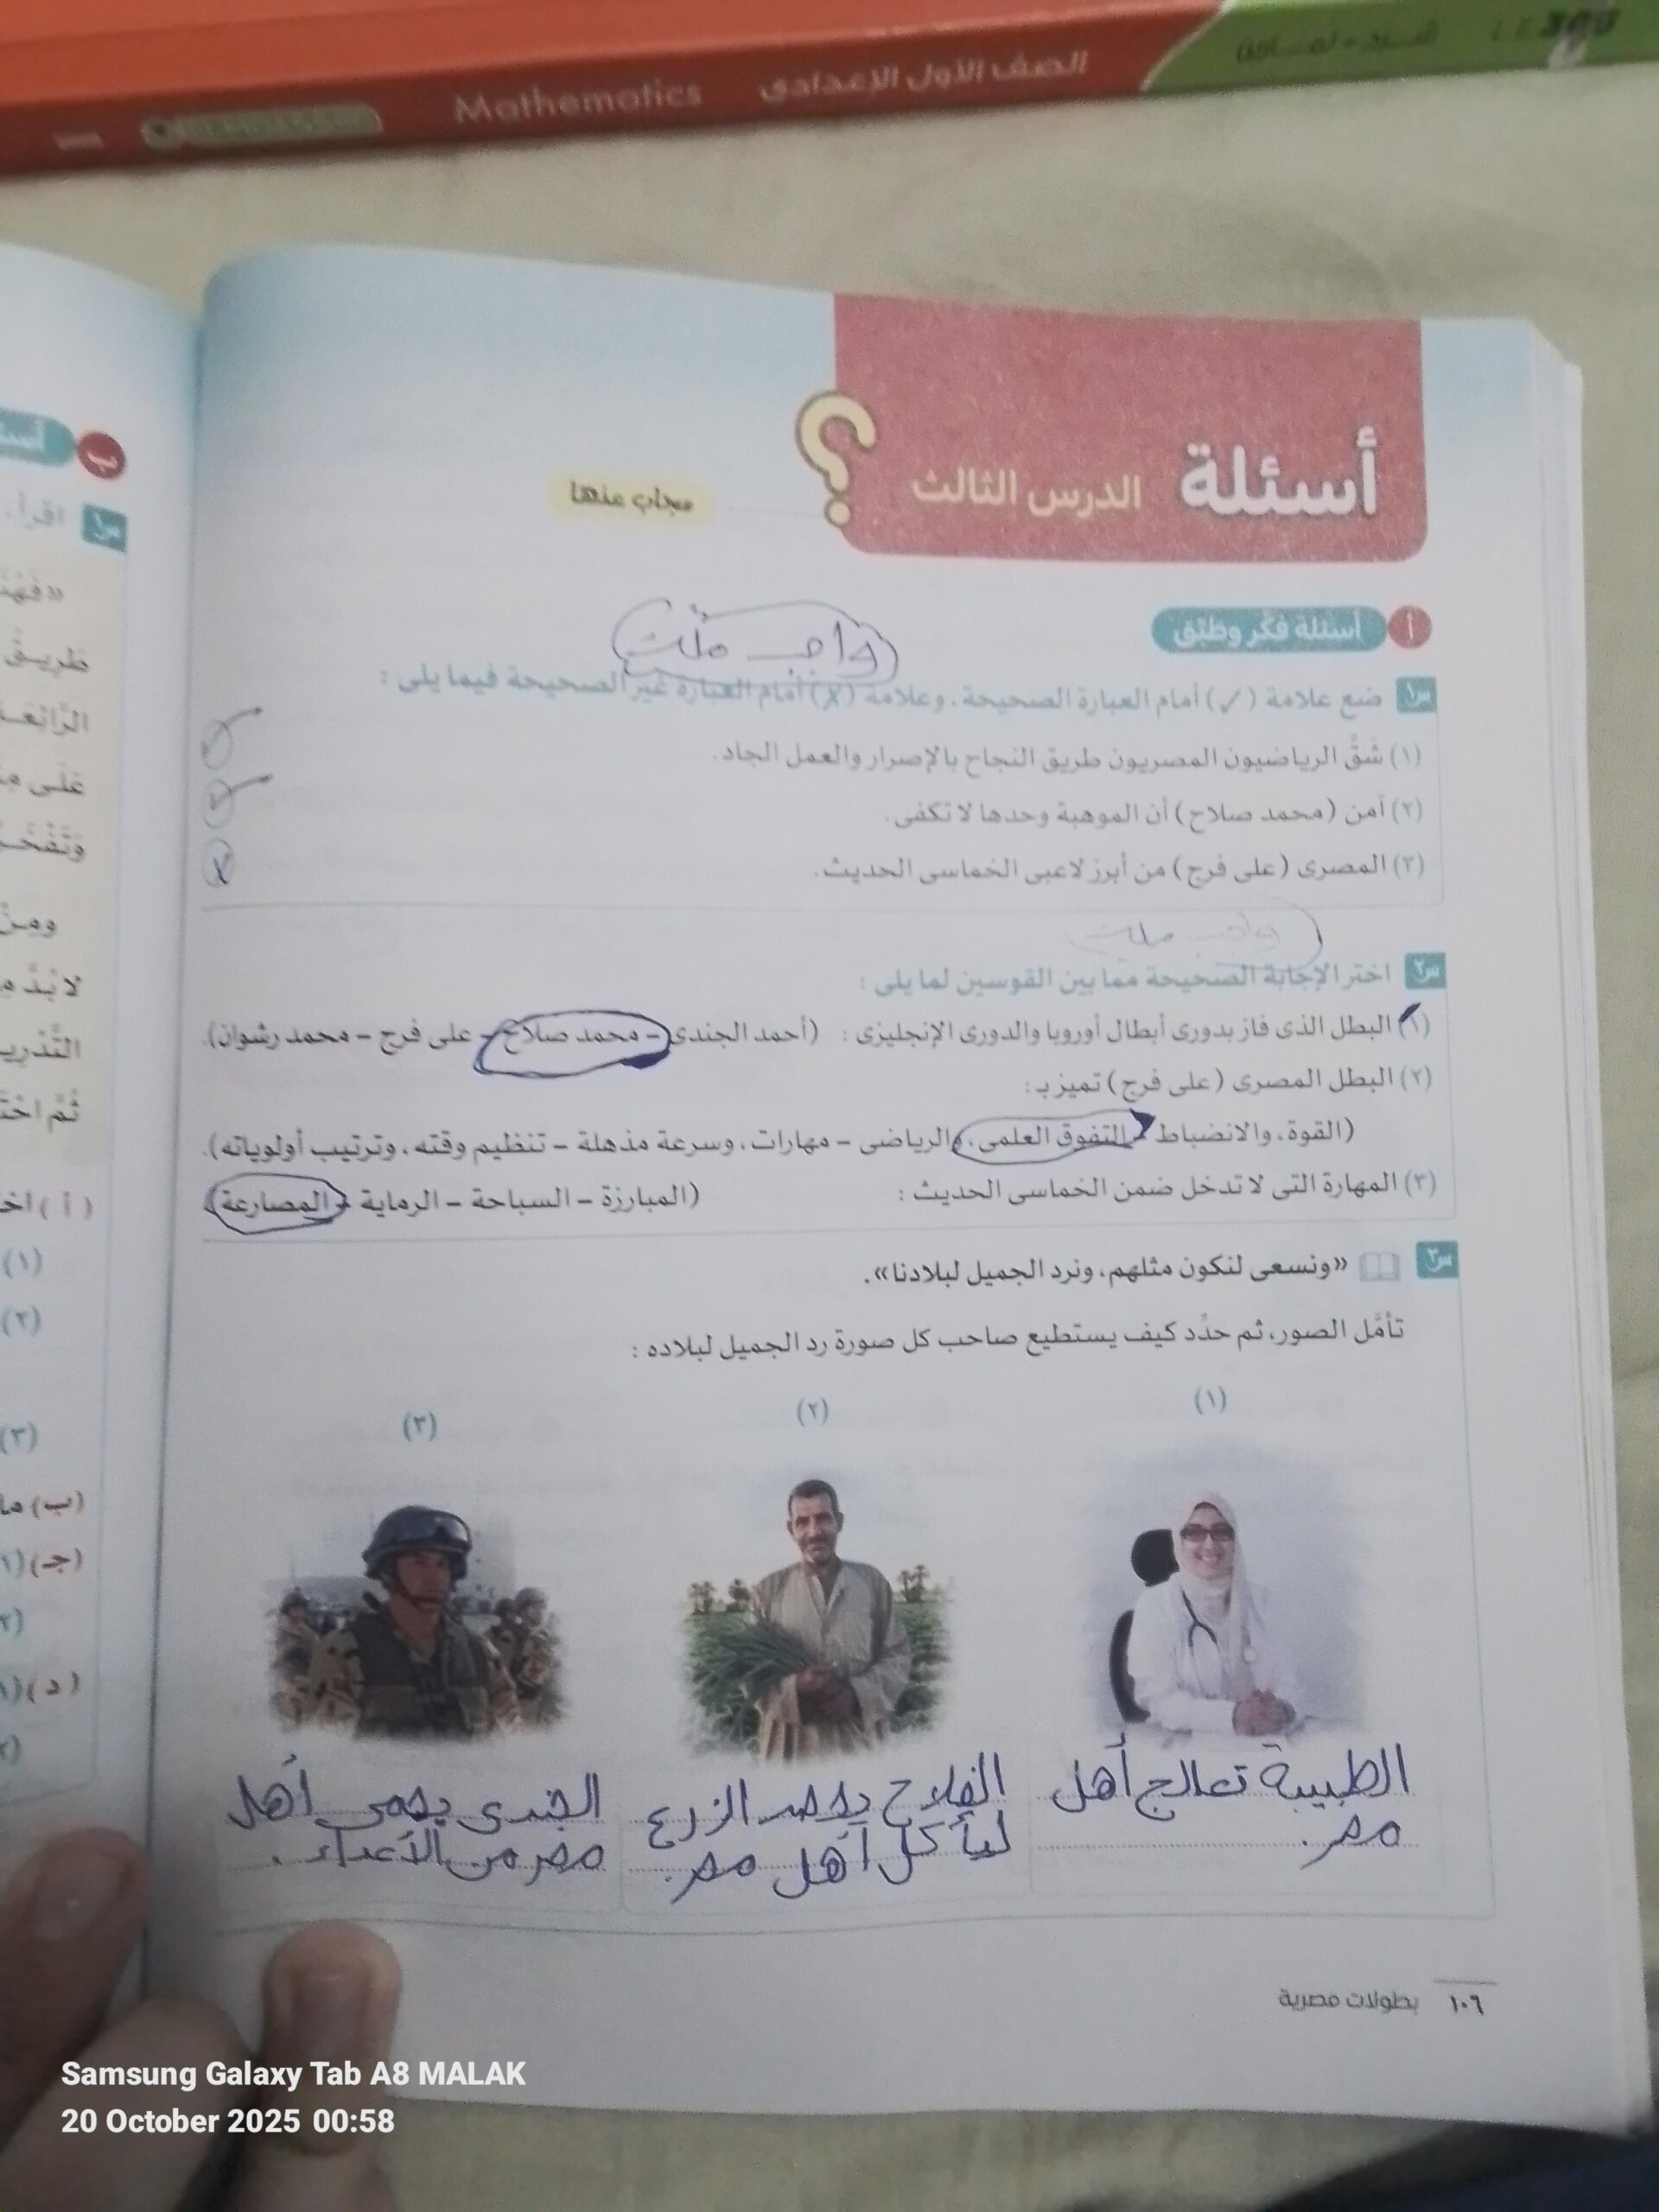 Mathematics
الصف الأول الإعدادى
أسئلة
الدرس الثالث
؟
مجاب عنها
أ
أسئلة فكر وطبّق
واجب ملك
س١
ضع علامة (✓) أمام العبارة الصحيحة، وعلامة (✗) أمام العبارة غير الصحيحة فيما يلى :
(١) شَقَّ الرياضيون المصريون طريق النجاح بالإصرار والعمل الجاد.
✓
(٢) آمن (محمد صلاح) أن الموهبة وحدها لا تكفى.
✓
(٣) المصرى (على فرج) من أبرز لاعبى الخماسى الحديث.
✗
واجب ملك
س٢
اختر الإجابة الصحيحة مما بين القوسين لما يلى :
(١) البطل الذى فاز بدورى أبطال أوروبا والدورى الإنجليزى : (أحمد الجندى – محمد صلاح – على فرج – محمد رشوان).
(٢) البطل المصرى (على فرج) تميز بـ:
(القوة، والانضباط – التفوق العلمى، والرياضى – مهارات، وسرعة مذهلة – تنظيم وقته، وترتيب أولوياته).
(٣) المهارة التى لا تدخل ضمن الخماسى الحديث : (المبارزة – السباحة – الرماية – المصارعة)
س٣
«ونسعى لنكون مثلهم، ونرد الجميل لبلادنا».
تأمَّل الصور، ثم حدِّد كيف يستطيع صاحب كل صورة رد الجميل لبلاده :
(١)
(٢)
(٣)
الطبيبة تعالج أهل
مصر.
الفلاح يحصد الزرع
ليأكل أهل مصر.
الجندى يحمى أهل
مصر من الأعداء.
١٠٦
بطولات مصرية
ب
س١
اقرأ
طَريقَ
عَلَى
لا بُدَّ
(أ)
(١)
(٢)
(٣)
(ب) ما
(جـ)
(د)
Samsung Galaxy Tab A8 MALAK
20 October 2025 00:58